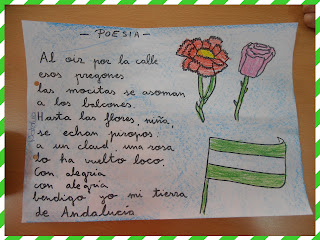 - POESIA -
Al oir por la calle
esos pregones
las mocitas se asoman
a los balcones.
Hasta las flores, niña,
se echan piropos:
a un clavel una rosa
lo ha vuelto loco.
Con alegría
con alegria
bendigo yo mi tierra
de Andalucia